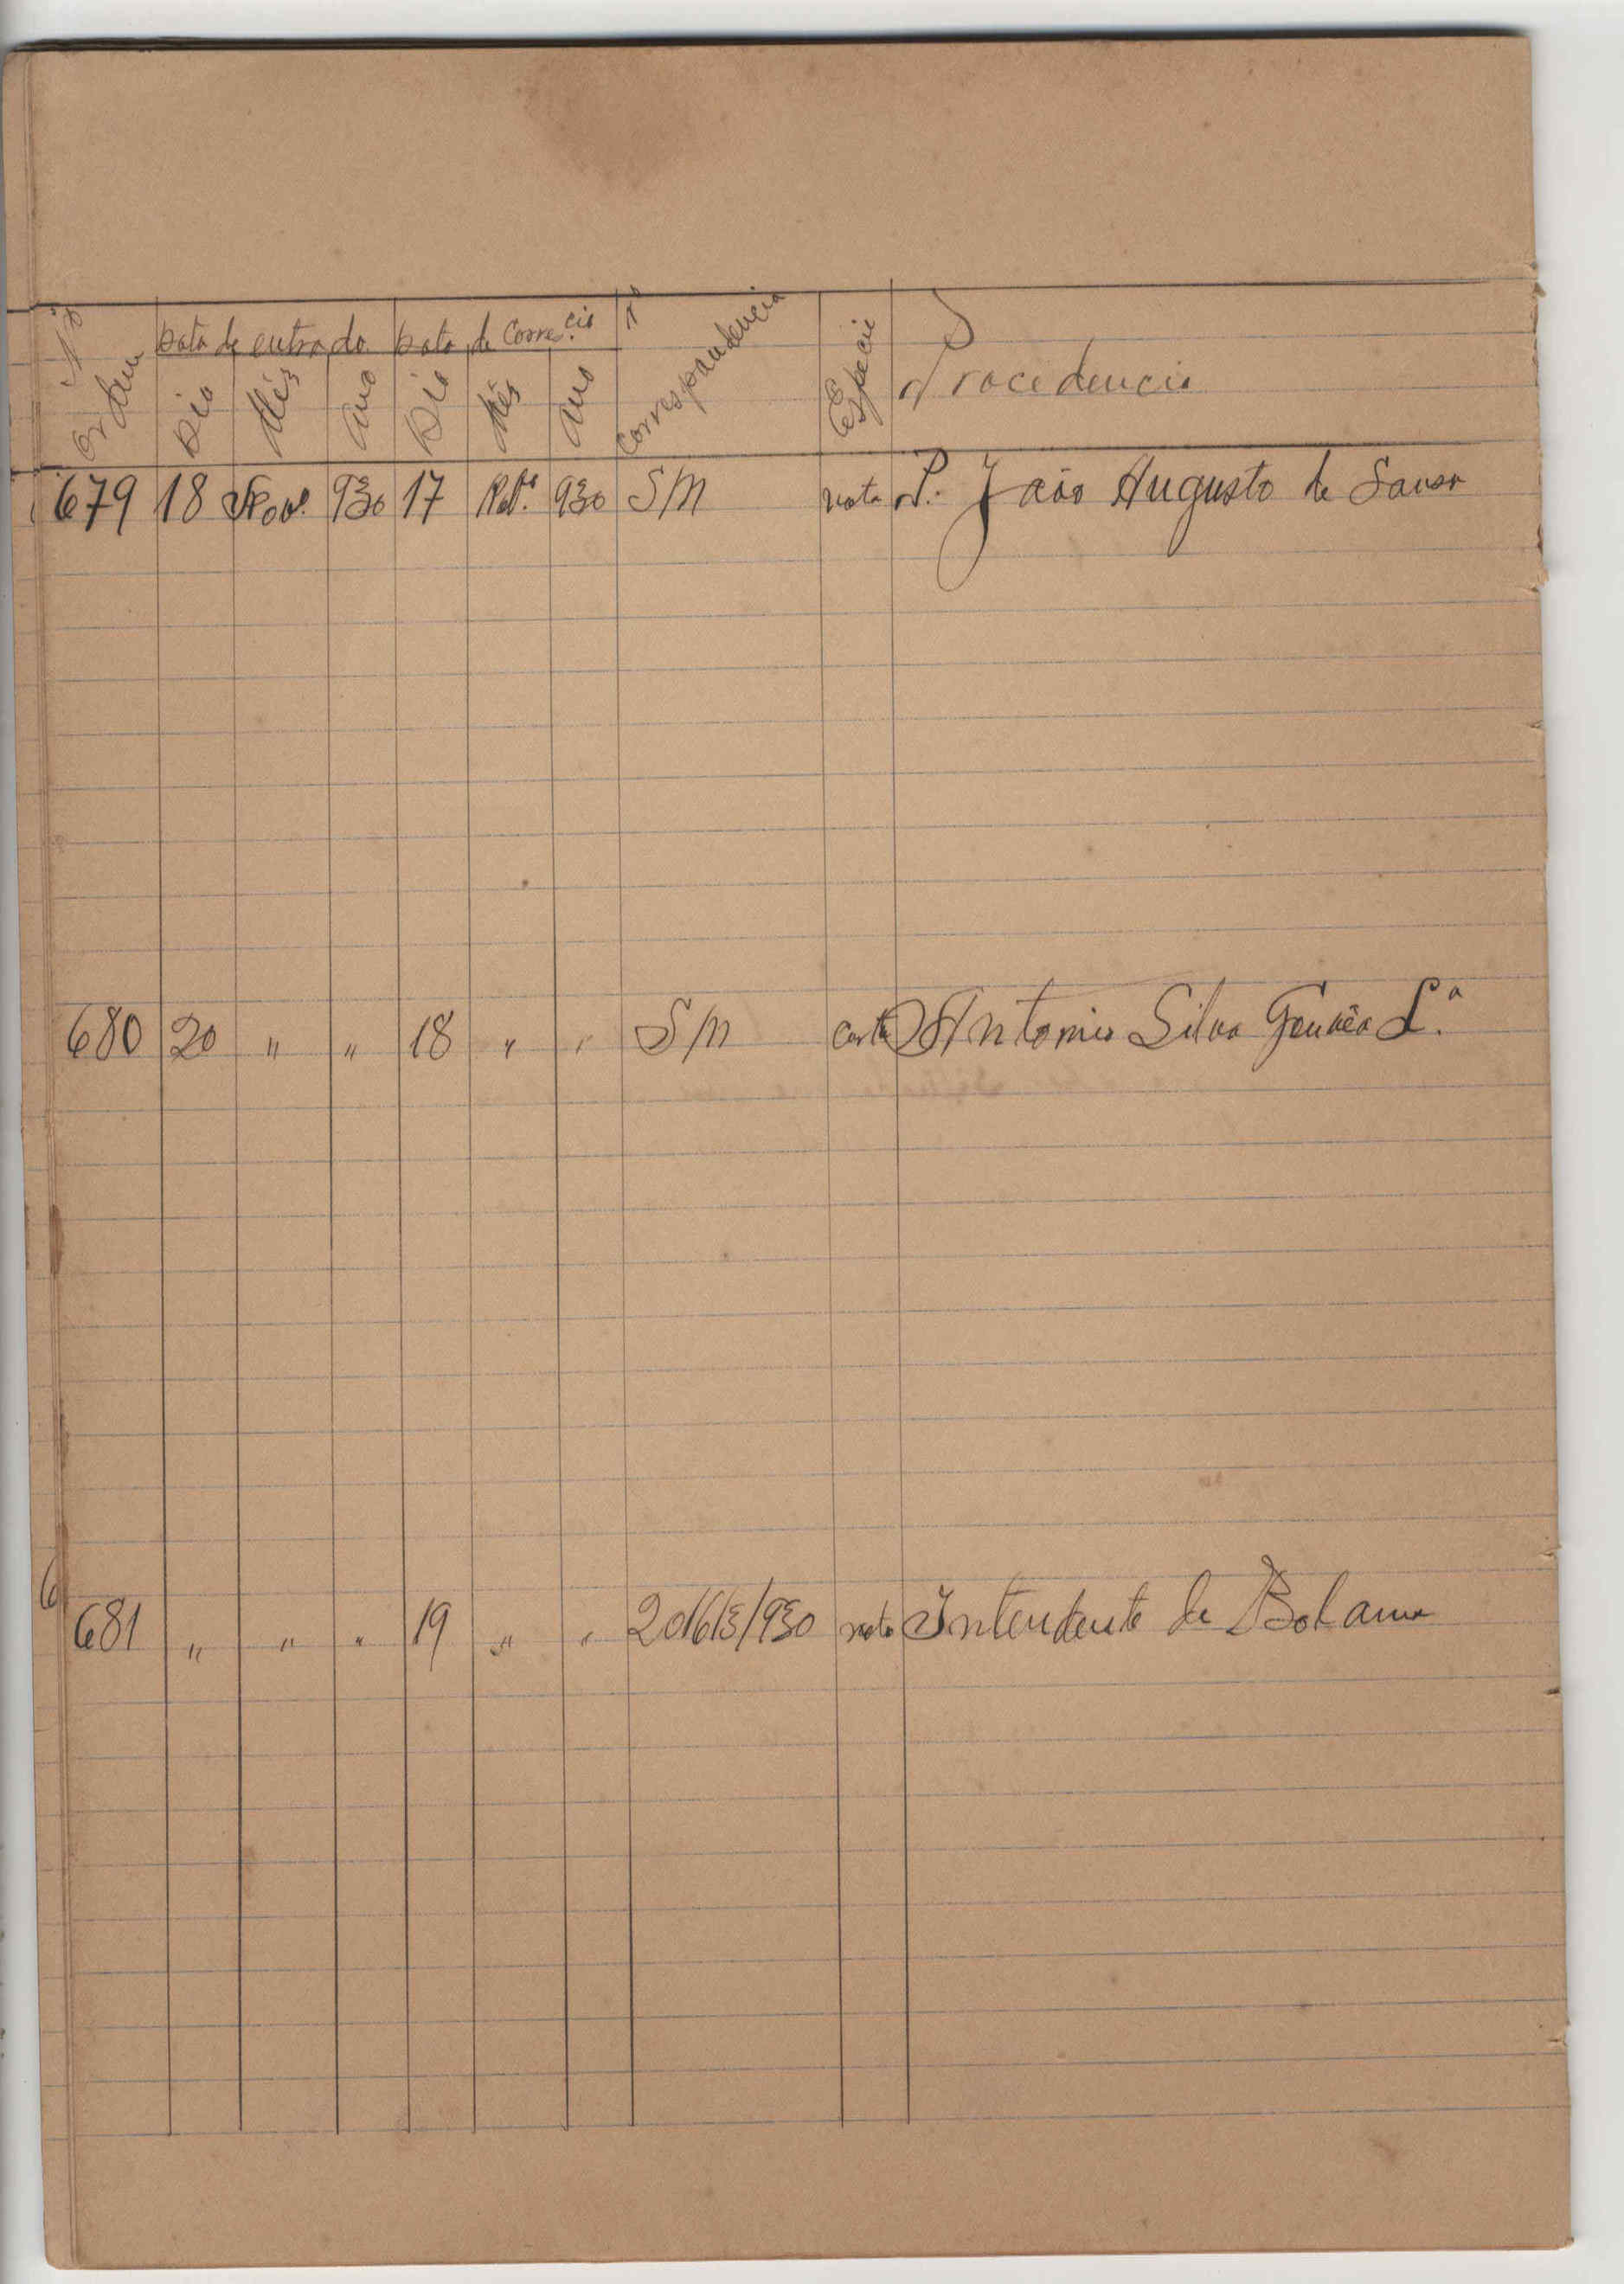 Nº Ordem
Data de entrada Data de Corres.cia Nº Correspondencia Especie Procedencia
Dia Mês Ano Dia Mês Ano
679 18 Novº. 930 17 Novº. 930 S/N nota P. João Augusto de Sousa
680 20 " " 18 " " S/N carta Antonio Silva Gouvêa Lª.
681 " " " 19 " " 2016/3/930 nota Intendente de Bolama